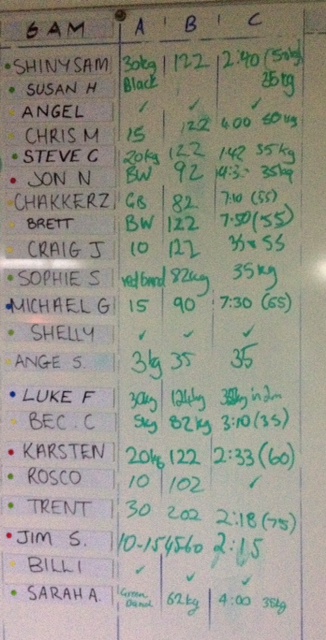 6 AM A B C
SHINY SAM 30kg 122 2:40 (50kg)
SUSAN H Black 35kg
ANGEL ✓ ✓ ✓
CHRIS M 15 122 4:00 50kg
STEVE C 20kg 122 1:42 35kg
JON N BW 92 35kg
CHAKKERZ GB 82 7:10 (55)
BRETT BW 122 7:50 (55)
CRAIG J 10 122 55
SOPHIE S red band 82kg 35kg
MICHAEL G 15 90 7:30 (65)
SHELLY ✓ ✓ ✓
ANGE S. 3kg 35 35
LUKE F 30kg 124kg in 2m
BEC. C 5kg 82kg 3:10 (35)
KARSTEN 20kg 122 2:33 (60)
ROSCO 10 102 ✓
TRENT 30 202 2:18 (75)
JIM S. 10-15 2:15
BILLI ✓ ✓ ✓
SARAH A. Green Band 62kg 4:00 35kg